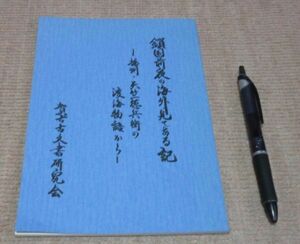 鎖国前夜の海外見てある記
ー播州・天竺徳兵衛の
渡海物語からー
智古文書研究会